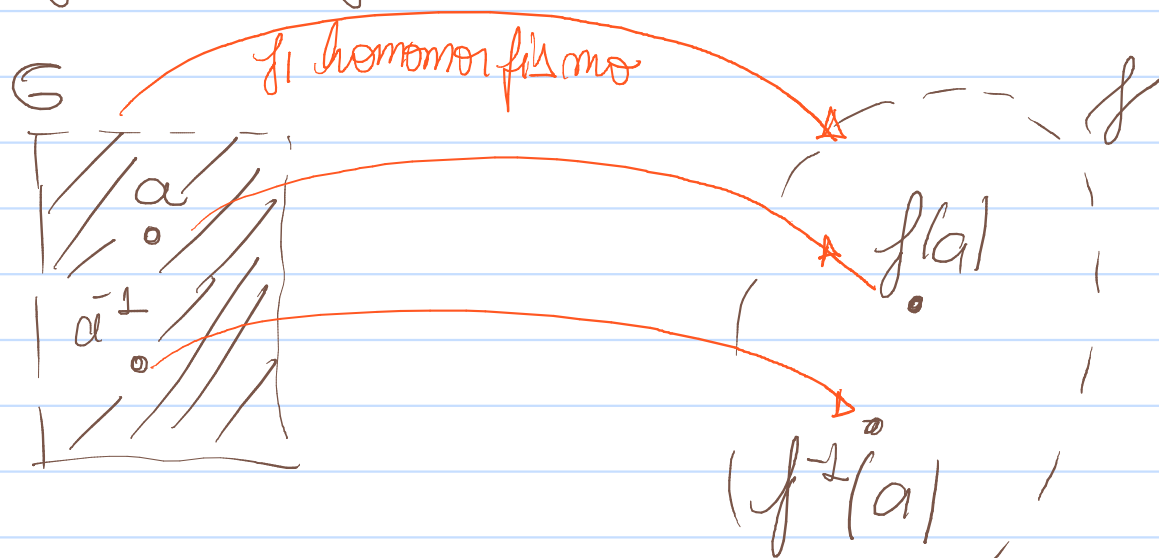 f, homomorfismo
G
f
a
f(a)
a⁻¹
(f⁻¹(a)